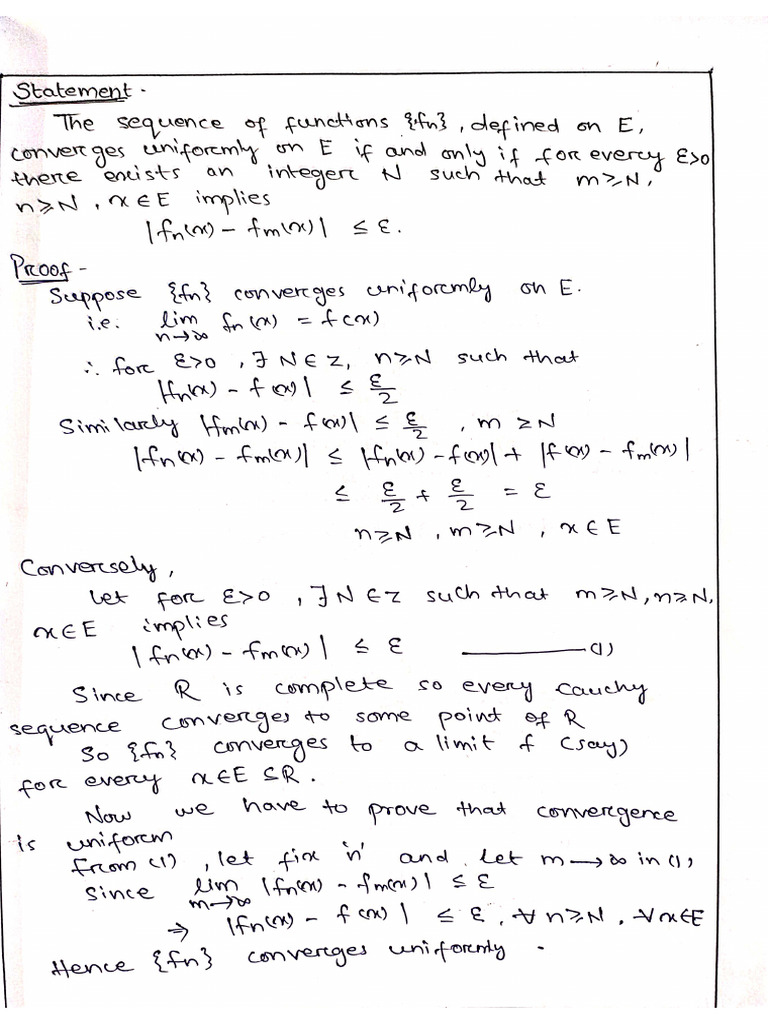 Statement.
The sequence of functions {fn}, defined on E,
converges uniformly on E if and only if for every ε>0
there exists an integer N such that m≥N,
n≥N, x∈E implies
|fn(x) - fm(x)| ≤ ε.
Proof -
Suppose {fn} converges uniformly on E.
i.e. lim n→∞ fn(x) = f(x)
∴ for ε>0, ∃ N∈Z, n≥N such that
|fn(x) - f(x)| ≤ ε/2
Similarly |fm(x) - f(x)| ≤ ε/2, m ≥N
|fn(x) - fm(x)| ≤ |fn(x) - f(x)| + |f(x) - fm(x)|
≤ ε/2 + ε/2 = ε
n≥N, m≥N, x∈E
Conversely,
Let for ε>0, ∃ N∈Z such that m≥N, n≥N,
x∈E implies
|fn(x) - fm(x)| ≤ ε ——— (1)
Since R is complete so every Cauchy
sequence converges to some point of R
So {fn} converges to a limit f (say)
for every x∈E ⊆R.
Now we have to prove that convergence
is uniform
From (1), let fix 'n' and let m→∞ in (1)
Since lim m→∞ |fn(x) - fm(x)| ≤ ε
⇒ |fn(x) - f(x)| ≤ ε, ∀ n≥N, ∀x∈E
Hence {fn} converges uniformly.